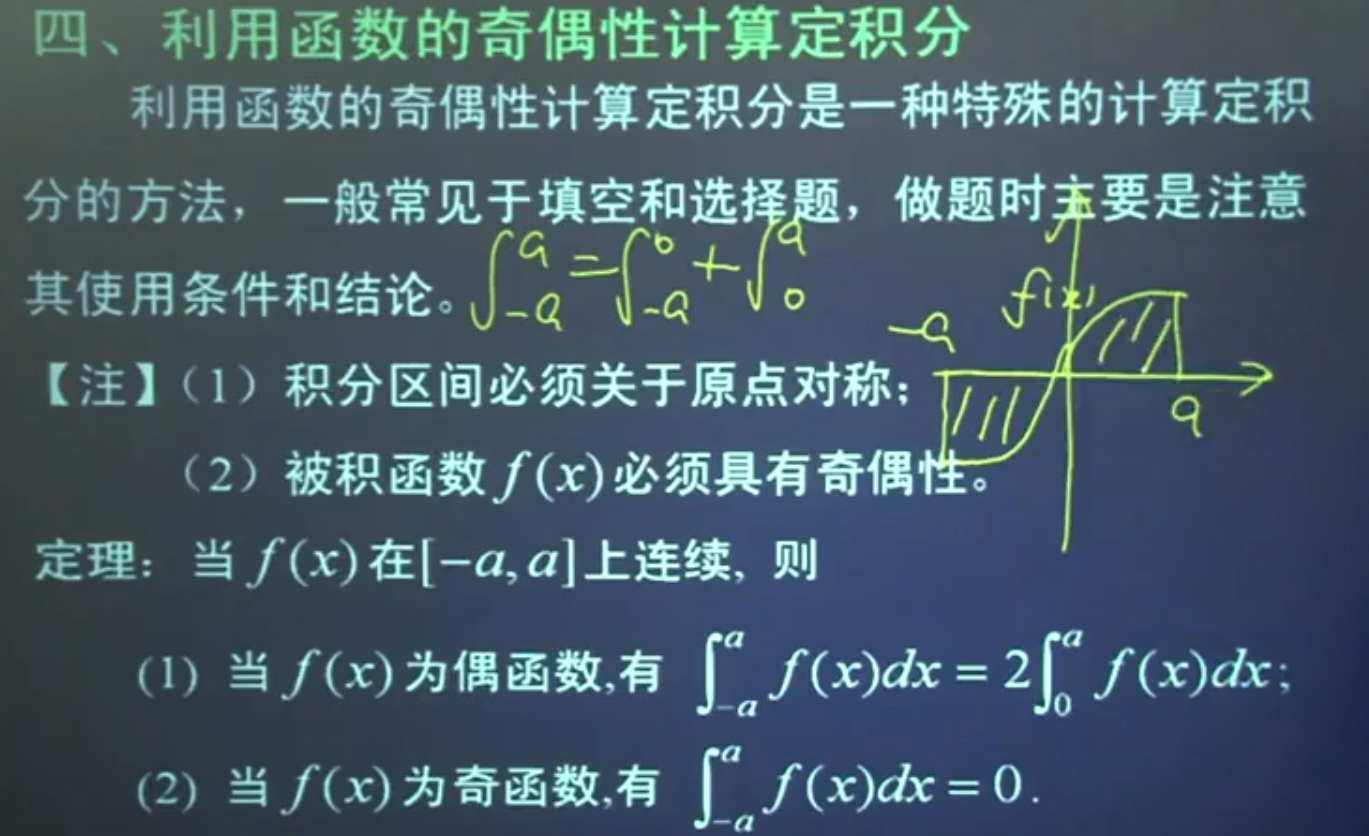 四、利用函数的奇偶性计算定积分
利用函数的奇偶性计算定积分是一种特殊的计算定积
分的方法，一般常见于填空和选择题，做题时主要是注意
其使用条件和结论。
∫_{-a}^{a} = ∫_{-a}^{0} + ∫_{0}^{a}
f(x)
-a
a
【注】（1）积分区间必须关于原点对称；
（2）被积函数 f(x) 必须具有奇偶性。
定理：当 f(x) 在[-a, a]上连续, 则
(1) 当 f(x) 为偶函数,有 ∫_{-a}^{a} f(x)dx = 2∫_{0}^{a} f(x)dx;
(2) 当 f(x) 为奇函数,有 ∫_{-a}^{a} f(x)dx = 0.